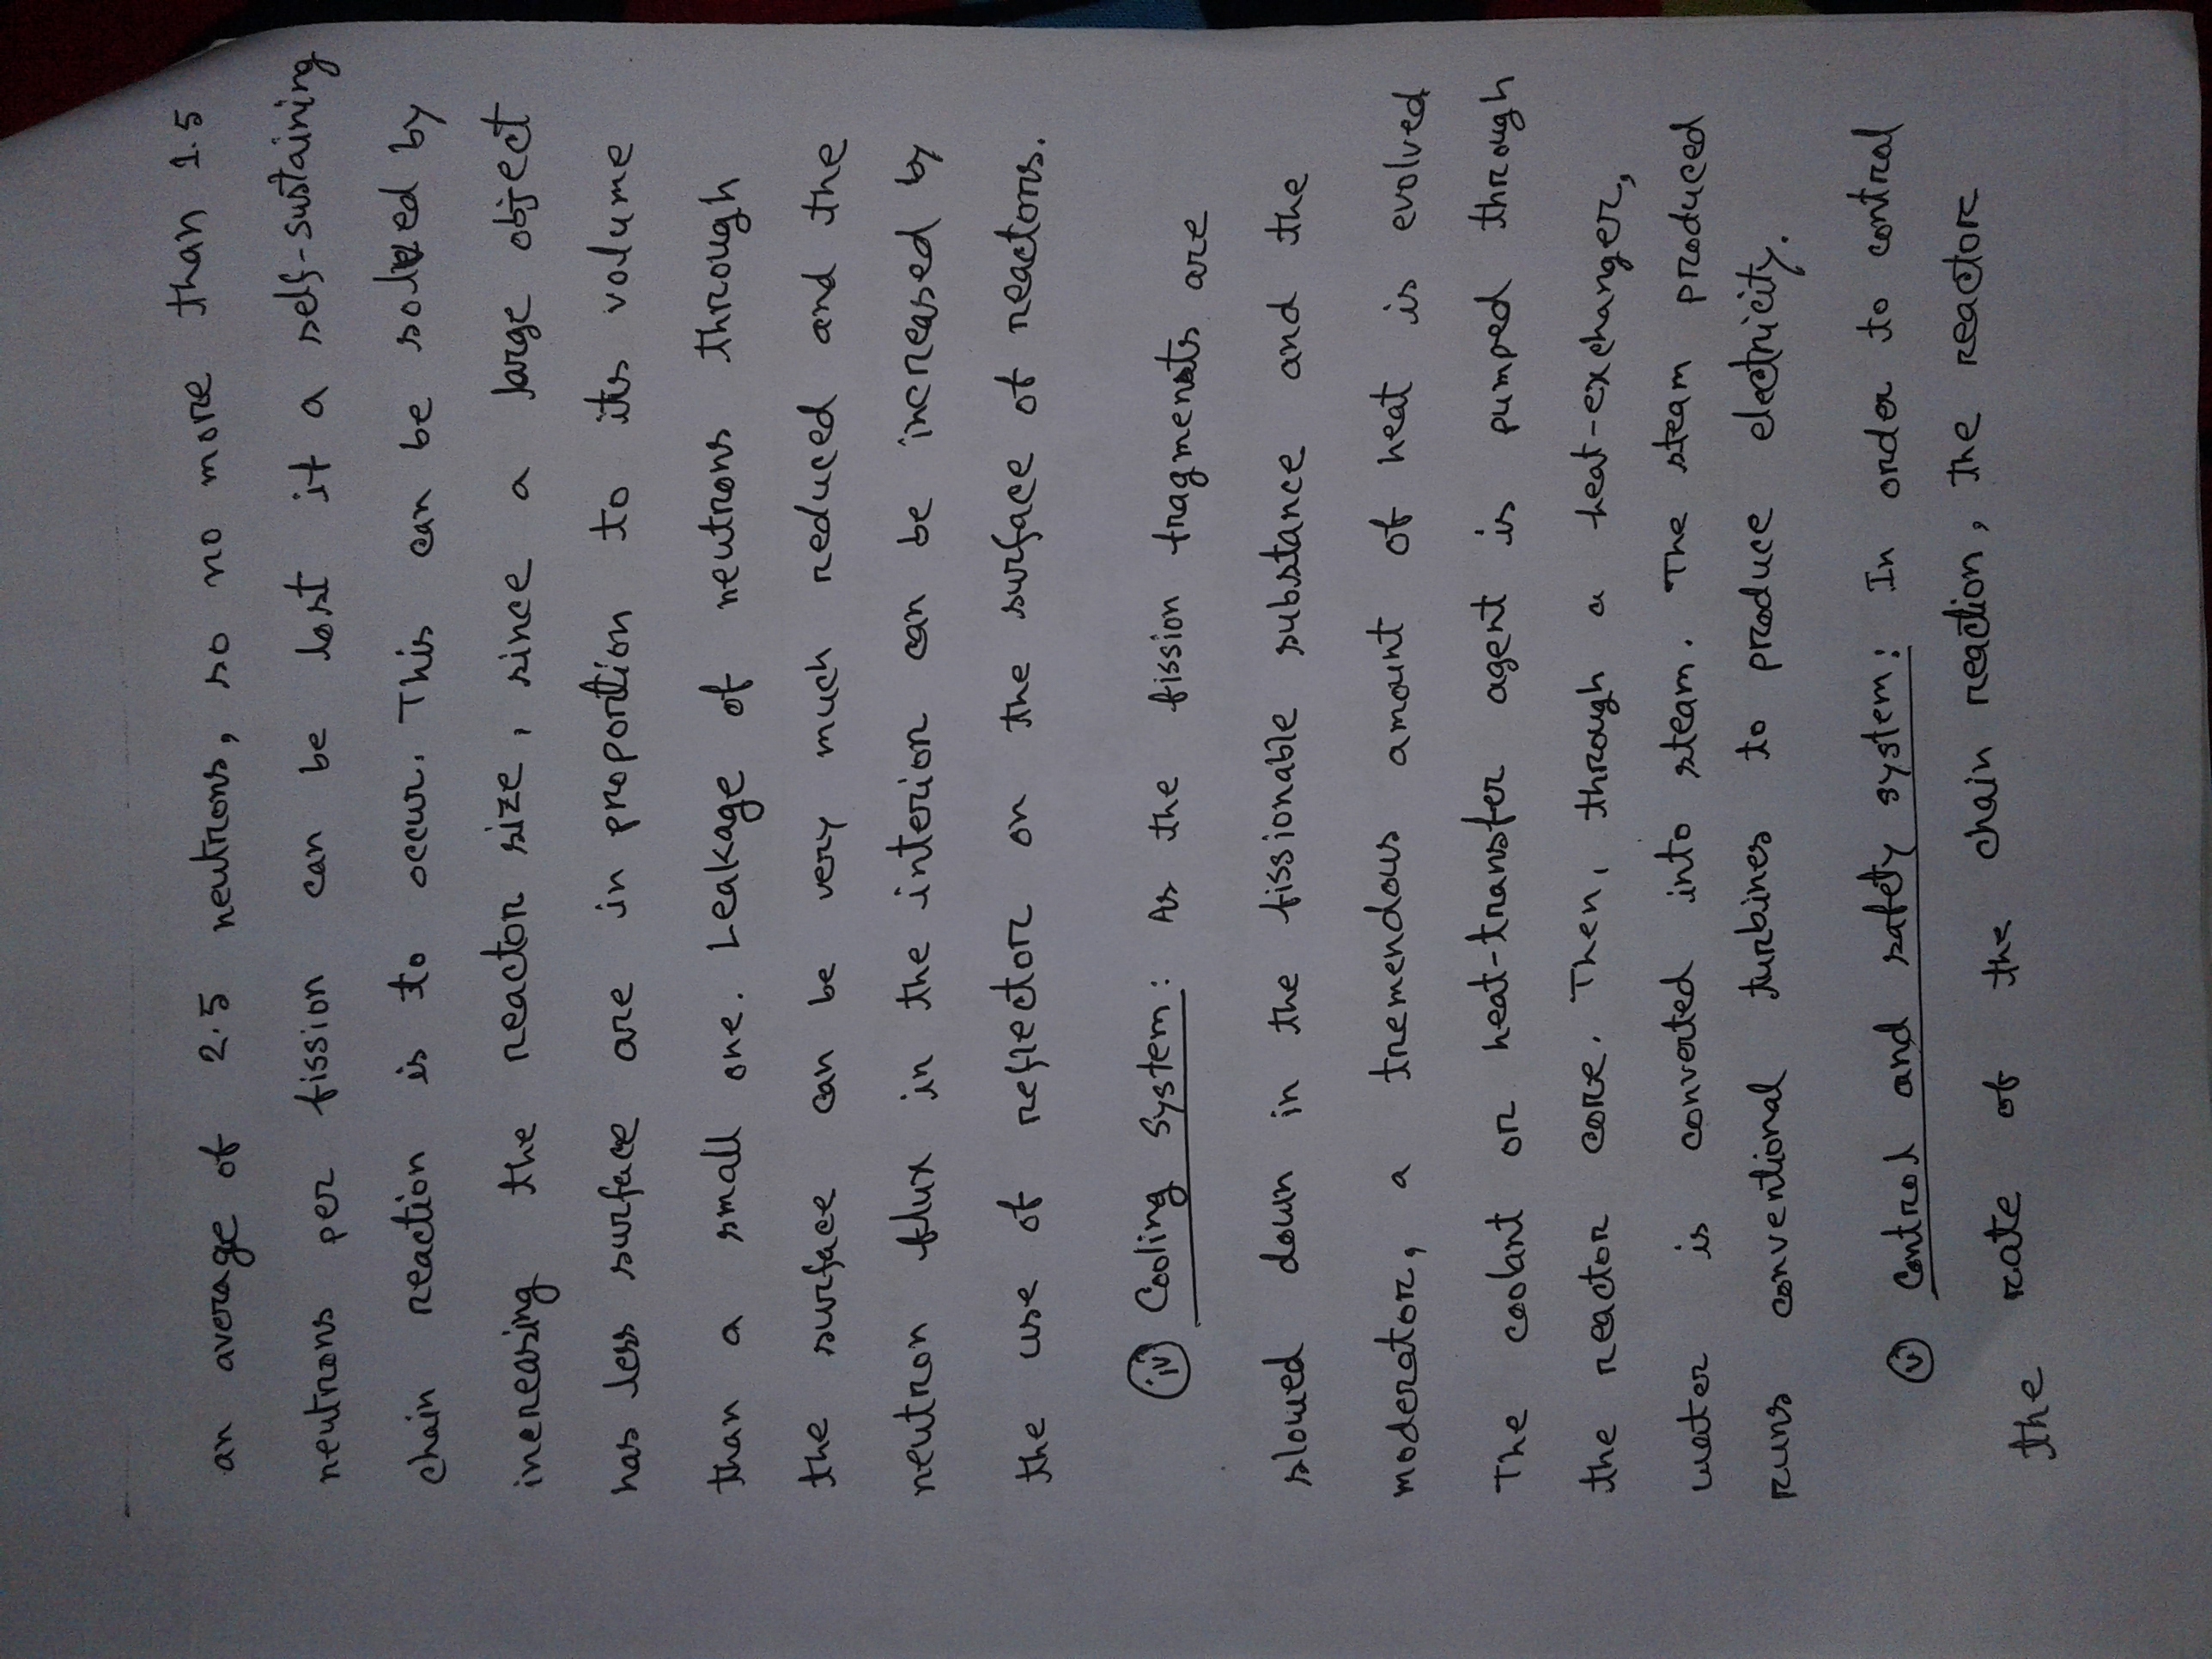 an average of 2.5 neutrons, so no more than 1.5
neutrons per fission can be lost if a self-sustaining
chain reaction is to occur. This can be solved by
increasing the reactor size, since a large object
has less surface are in proportion to its volume
than a small one. Leakage of neutrons through
the surface can be very much reduced and the
neutron flux in the interior can be increased by
the use of reflector on the surface of reactors.
(iv) Cooling System: As the fission fragments are
slowed down in the fissionable substance and the
moderator, a tremendous amount of heat is evolved
The coolant or heat-transfer agent is pumped through
the reactor core. Then, through a heat-exchanger,
water is converted into steam. The steam produced
runs conventional turbines to produce electricity.
(v) Control and safety system: In order to control
the rate of the chain reaction, the reactor